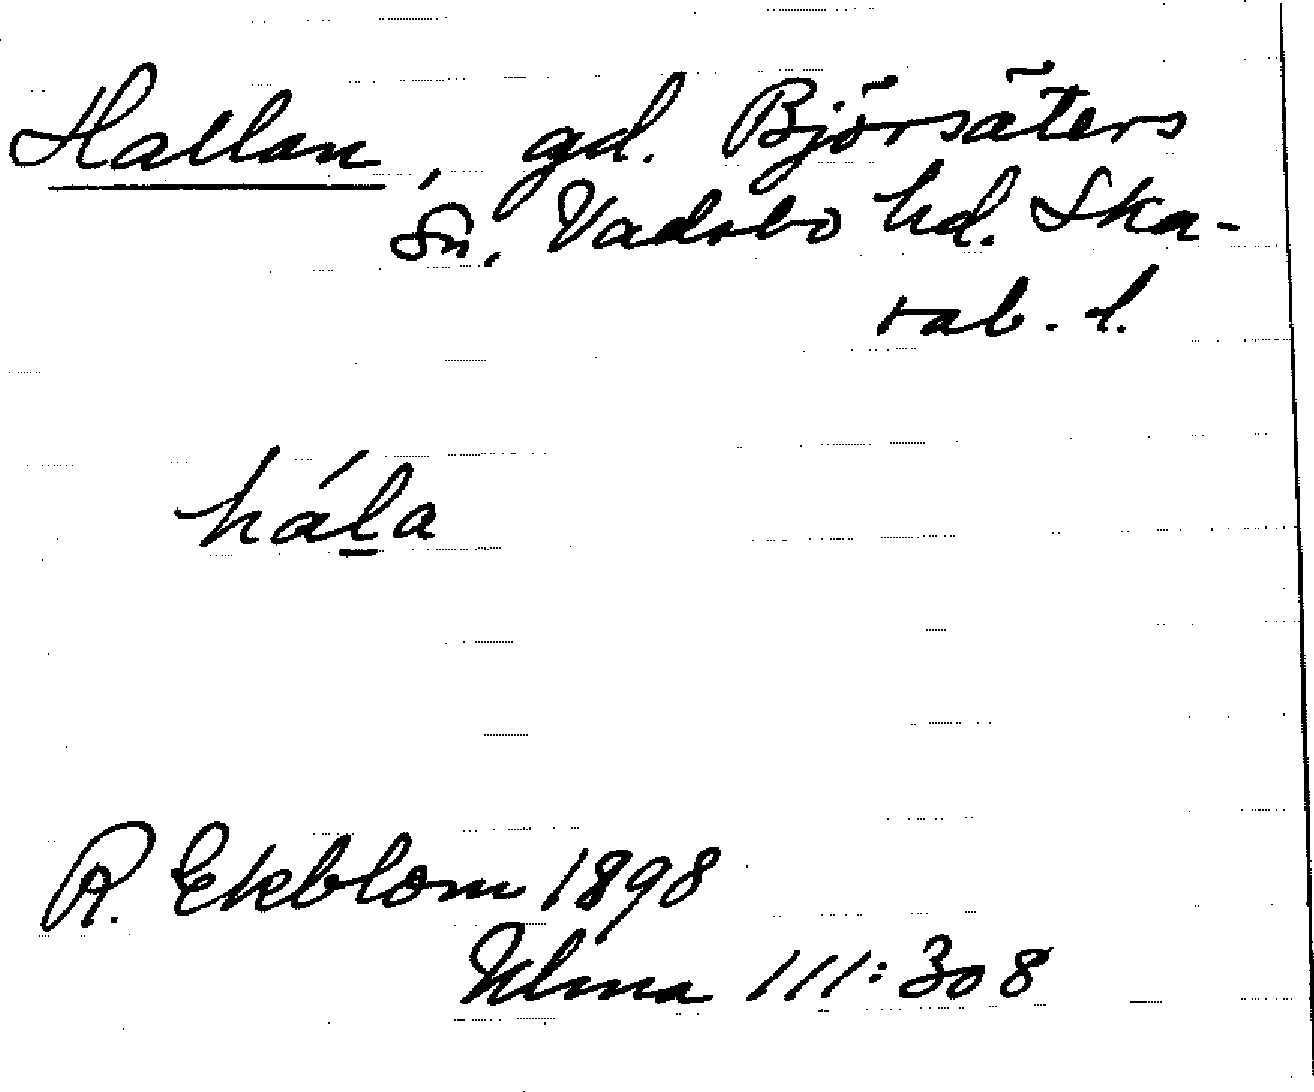 Hallan, gd. Björsäters
Sn, Vadsbo hd. Ska-
rab. l.
hála
R. Ekblom 1898
Ulma 111:308